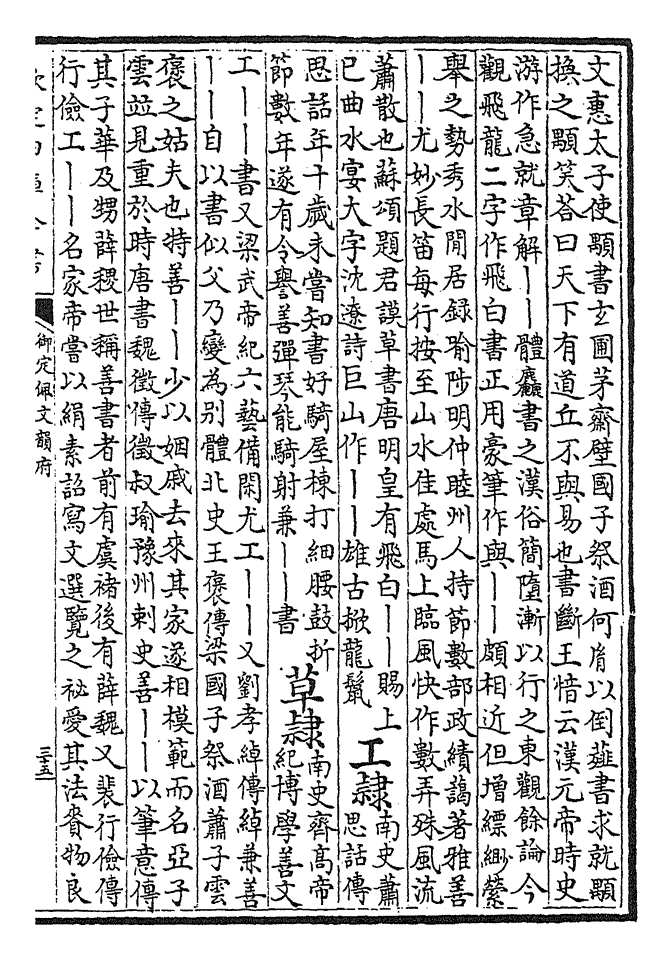 文惠太子使顒書玄圃茅齋壁國子祭酒何胤以倒薤書求就顒
換之顒笑荅曰天下有道丘不與易也書斷王愔云漢元帝時史
游作急就章解丨丨體麤書之漢俗簡墮漸以行之東觀餘論今
觀飛龍二字作飛白書正用豪筆作與丨丨頗相近但增縹緲縈
舉之勢秀水閒居録喻陟明仲睦州人持節數部政績藹著雅善
丨丨尤妙長笛每行按至山水佳處馬上臨風快作數弄殊風流
蕭散也蘇頌題君謨草書唐明皇有飛白丨丨賜上
已曲水宴大字沈遼詩巨山作丨丨雄古掀龍鬣
工隸
南史蕭
思話傳
思話年十歲未嘗知書好騎屋棟打細腰鼓折
節數年遂有令譽善彈琴能騎射兼丨丨書
草隸
南史齊高帝
紀博學善文
工丨丨書又梁武帝紀六藝備閑尤工丨丨又劉孝綽傳綽兼善
丨丨自以書似父乃變為別體北史王褒傳梁國子祭酒蕭子雲
褒之姑夫也特善丨丨少以姻戚去來其家遂相模範而名亞子
雲並見重於時唐書魏徵傳徵叔瑜豫州刺史善丨丨以筆意傳
其子華及甥薛稷世稱善書者前有虞褚後有薛魏又裴行儉傳
行儉工丨丨名家帝嘗以絹素詔寫文選覽之祕愛其法賚物良
欽定四庫全書
御定佩文韻府
三十五